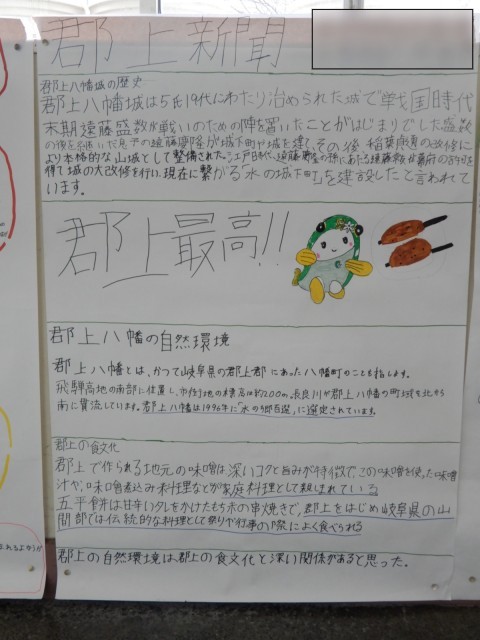 郡上新聞
郡上八幡城の歴史
郡上八幡城は5氏19代にわたり治められた城で戦国時代
末期遠藤盛数が戦いのための陣を置いたことがはじまりでした盛数
の後を継いだ息子の遠藤慶隆が城下町や城を建て、その後 稲葉貞通の改修に
より本格的な山城として整備された。江戸時代、遠藤慶隆の孫にあたる遠藤常友が幕府の許可を
得て城の大改修を行い、現在に繋がる「水の城下町」を建設したと言われて
います。
郡上最高!!
郡上八幡の自然環境
郡上八幡とは、かつて岐阜県の郡上郡にあった八幡町のことを指します。
飛騨高地の南部に位置し、市街地の標高は約200m。長良川が郡上八幡の町域を北から
南に貫流しています。郡上八幡は1996年に「水の郷百選」に選定されています。
郡上の食文化
郡上で作られる地元の味噌は深いコクと旨みが特徴で、この味噌を使った味噌
汁や、味噌煮込み料理などが家庭料理として親しまれている
五平餅は甘辛いタレをかけたもち米の串焼きで、郡上をはじめ岐阜県の山
間部では伝統的な料理として祭りや行事の際によく食べられる
郡上の自然環境は、郡上の食文化と深い関係があると思った。